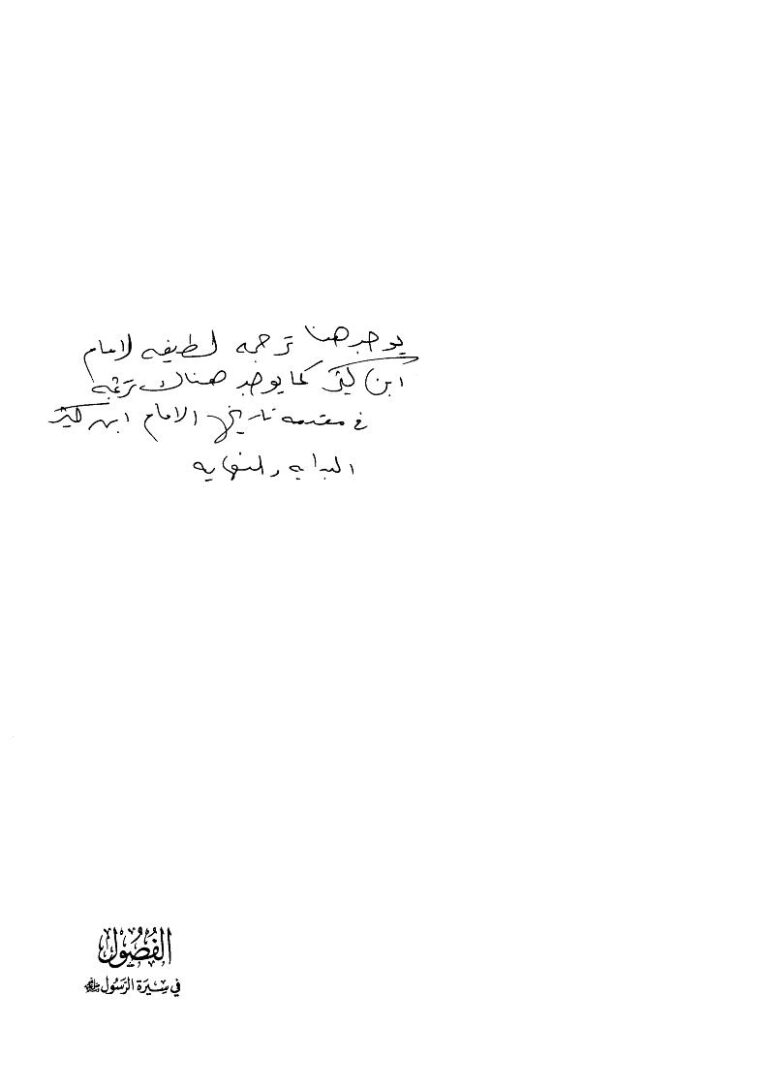 يوجد هنا ترجمه لطيفه لامام
ابن كثير كما يوجد هناك ترجمه
في مقدمه تاريخ الامام ابن كثير
البدايه والنهايه
الفُصُول
في سِيرَة الرَسُول ﷺ